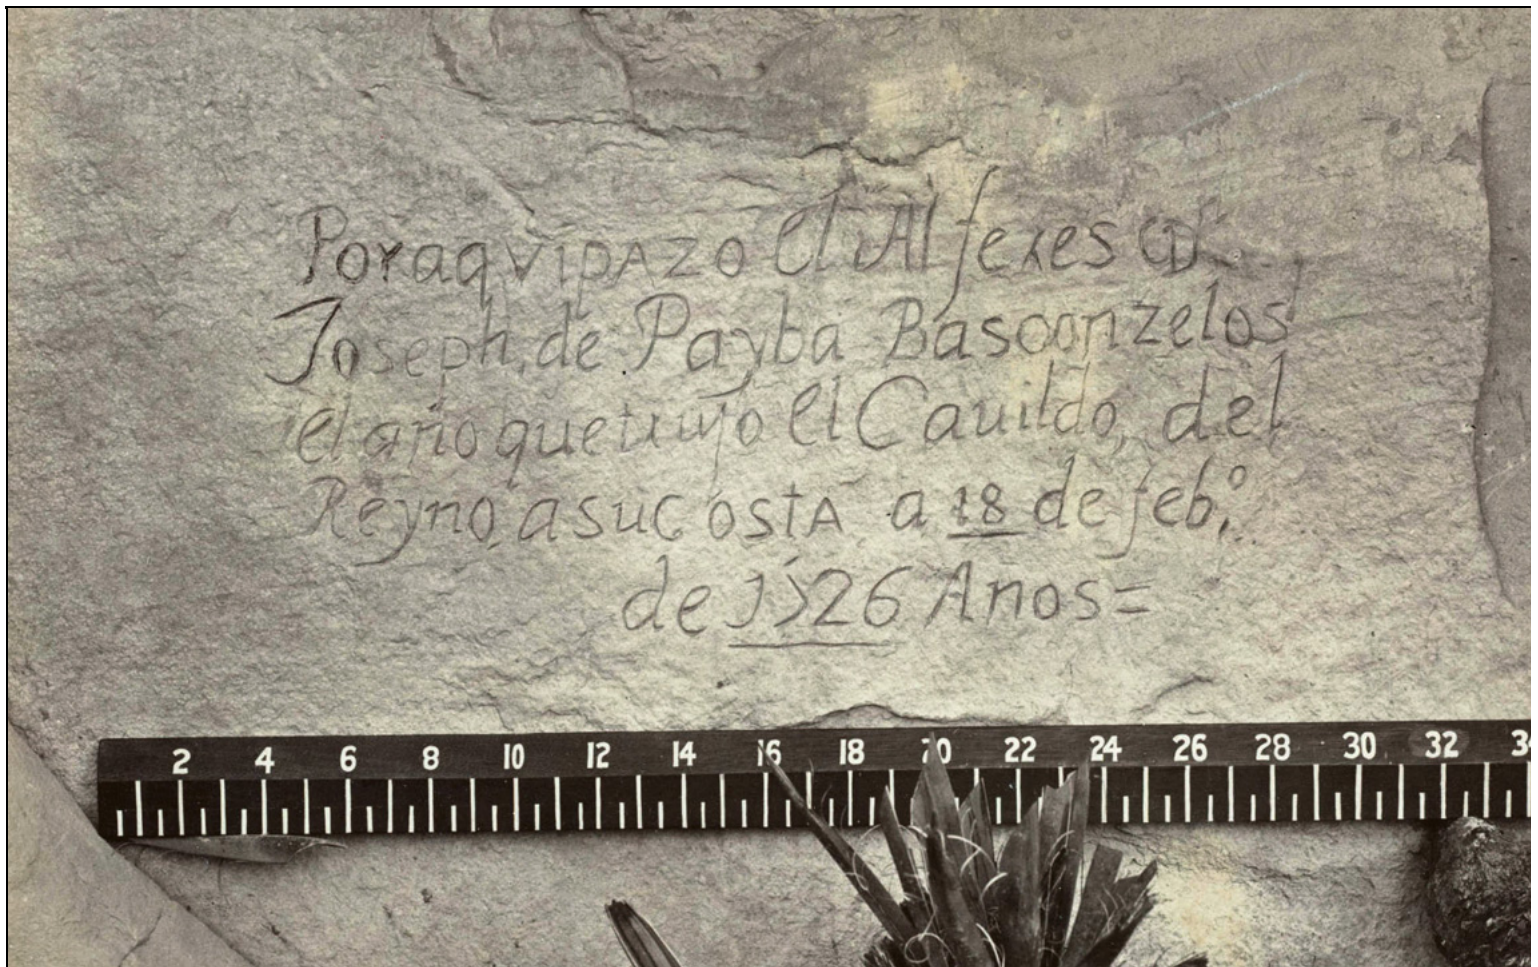 Por aqvi pAzo el Alferes D.
Joseph de Payba Basconzelos
el año que trujo el Cauildo del
Reyno a su costA a 18 de feb.º
de 1726 Anos=
2 4 6 8 10 12 14 16 18 20 22 24 26 28 30 32 34